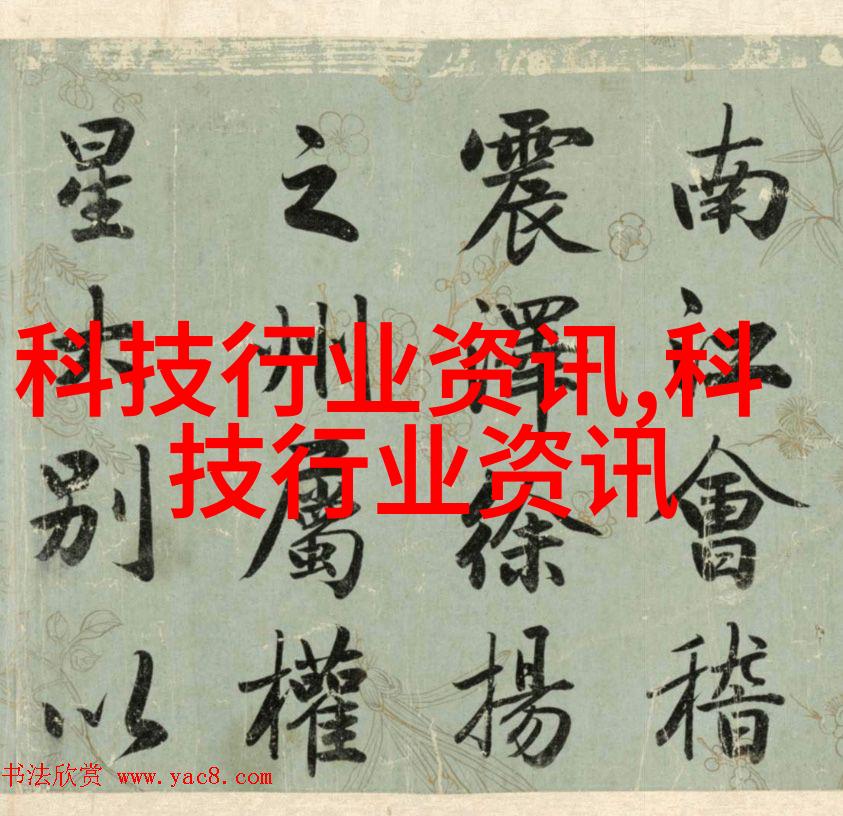 南江會稽
震澤徐揚
之州屬權
星別以
科技行业资讯,科
技行业资讯
书法欣赏 www.yac8.com